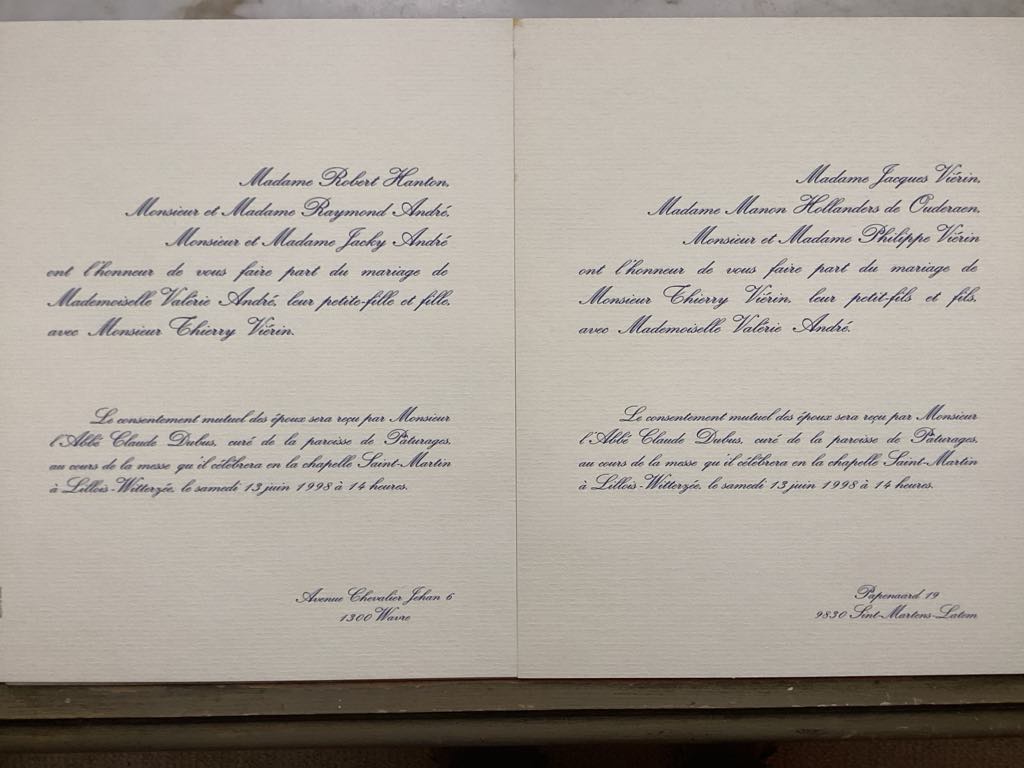 Madame Robert Hanton,
Monsieur et Madame Raymond André,
Monsieur et Madame Jacky André
ont l'honneur de vous faire part du mariage de
Mademoiselle Valérie André, leur petite-fille et fille,
avec Monsieur Thierry Viérin.
Le consentement mutuel des époux sera reçu par Monsieur
l'Abbé Claude Dubus, curé de la paroisse de Pâturages,
au cours de la messe qu'il célèbrera en la chapelle Saint-Martin
à Lillois-Witterzée, le samedi 13 juin 1998 à 14 heures.
Avenue Chevalier Jehan 6
1300 Wavre
Madame Jacques Viérin,
Madame Manon Hollanders de Ouderaen,
Monsieur et Madame Philippe Viérin
ont l'honneur de vous faire part du mariage de
Monsieur Thierry Viérin, leur petit-fils et fils,
avec Mademoiselle Valérie André.
Le consentement mutuel des époux sera reçu par Monsieur
l'Abbé Claude Dubus, curé de la paroisse de Pâturages,
au cours de la messe qu'il célèbrera en la chapelle Saint-Martin
à Lillois-Witterzée, le samedi 13 juin 1998 à 14 heures.
Papenaard 19
9830 Sint-Martens-Latem